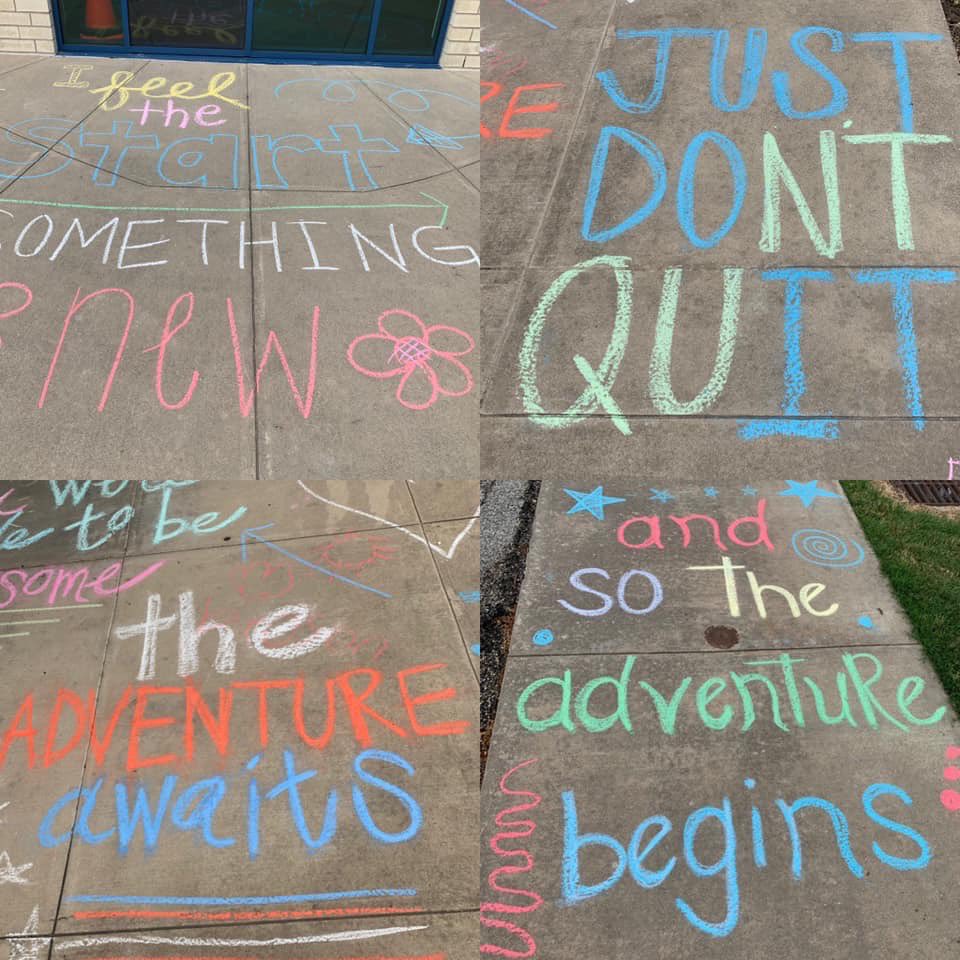 I feel
the
start
SOMETHING
new
RE
JUST
DON'T
QUIT
to be
some
the
ADVENTURE
awaits
and
so The
adventuRe
begins